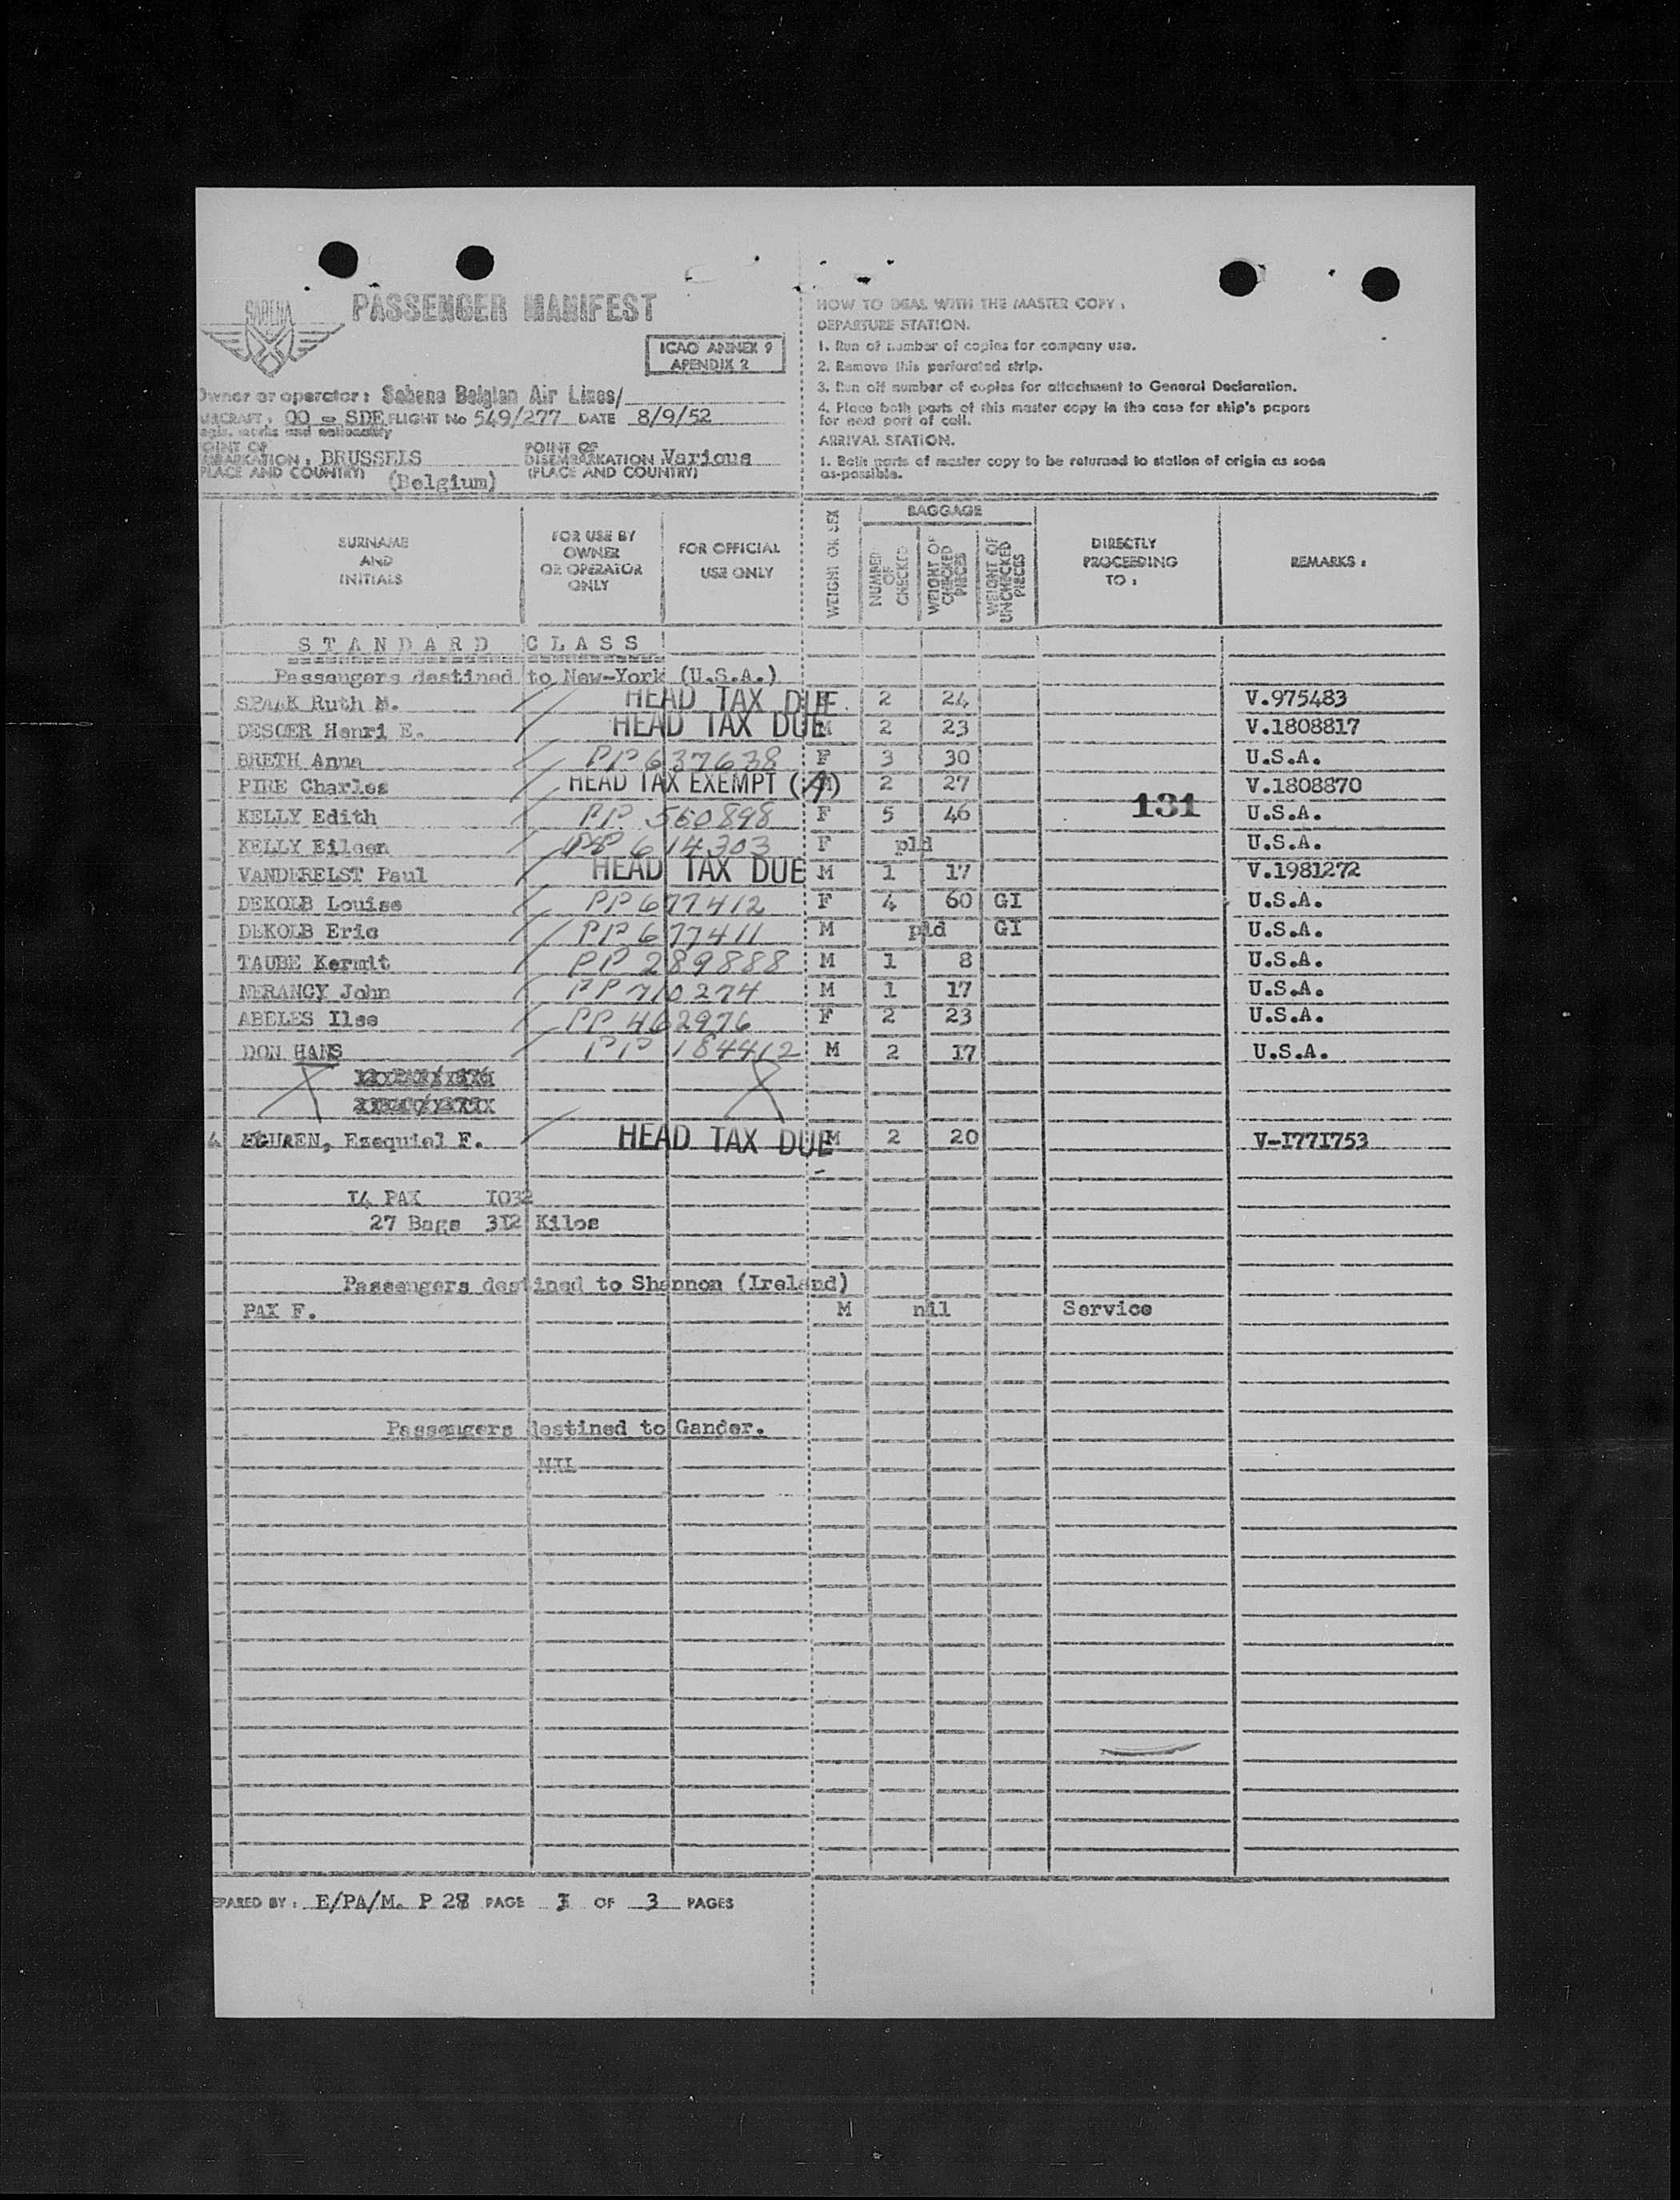 SABENA
PASSENGER MANIFEST
ICAO ANNEX 9
APENDIX 2
Owner or operator : Sabena Belgian Air Lines/
AIRCRAFT : OO - SDE FLIGHT No 549/277 DATE 8/9/52
POINT OF EMBARKATION : BRUSSELS POINT OF DISEMBARKATION Various
(PLACE AND COUNTRY) (Belgium) (PLACE AND COUNTRY)
HOW TO DEAL WITH THE MASTER COPY :
DEPARTURE STATION.
1. Run of number of copies for company use.
2. Remove this perforated strip.
3. Run off number of copies for attachment to General Declaration.
4. Place both parts of this master copy in the case for ship's papers
for next port of call.
ARRIVAL STATION.
1. Both parts of master copy to be returned to station of origin as soon
as-possible.
SURNAME AND INITIALS FOR USE BY OWNER OR OPERATOR ONLY FOR OFFICIAL USE ONLY WEIGHT OR SEX BAGGAGE NUMBER OF CHECKED WEIGHT OF CHECKED PIECES WEIGHT OF UNCHECKED PIECES DIRECTLY PROCEEDING TO : REMARKS :
STANDARD CLASS
Passengers destined to New-York (U.S.A.)
SPAAK Ruth M. HEAD TAX DUE F 2 24 V.975483
DESCER Henri E. HEAD TAX DUE M 2 23 V.1808817
BRETH Anna PP 637638 F 3 30 U.S.A.
PIRE Charles HEAD TAX EXEMPT (A) M 2 27 V.1808870
KELLY Edith PP 560898 F 5 46 131 U.S.A.
KELLY Eileen PP 614303 F pld U.S.A.
VANDERELST Paul HEAD TAX DUE M 1 17 V.1981272
DEKOLB Louise PP 677412 F 4 60 GI U.S.A.
DEKOLB Eric PP 677411 M pld GI U.S.A.
TAUBE Kermit PP 289888 M 1 8 U.S.A.
NERANCY John PP 710274 M 1 17 U.S.A.
ABELES Ilse PP 462976 F 2 23 U.S.A.
DON HANS PP 184412 M 2 17 U.S.A.
EGUREN, Ezequiel F. HEAD TAX DUE M 2 20 V-I77I753
I4 PAX I032
27 Bags 3I2 Kilos
Passengers destined to Shannon (Ireland)
PAX F. M nil Service
Passengers destined to Gander.
NIL
PREPARED BY : E/PA/M. P 28 PAGE 3 OF 3 PAGES